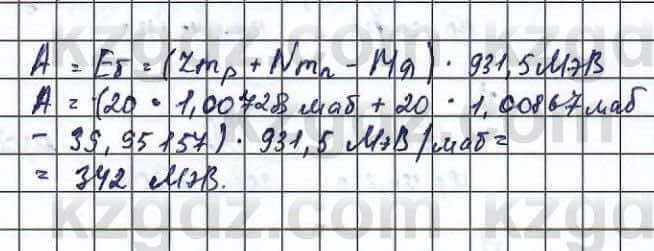 A = Eб = (Zmp + Nmn - Mя) · 931,5 МэВ
A = (20 · 1,00728 маб + 20 · 1,00867 маб
- 39,95157) · 931,5 МэВ/маб =
= 342 МэВ.